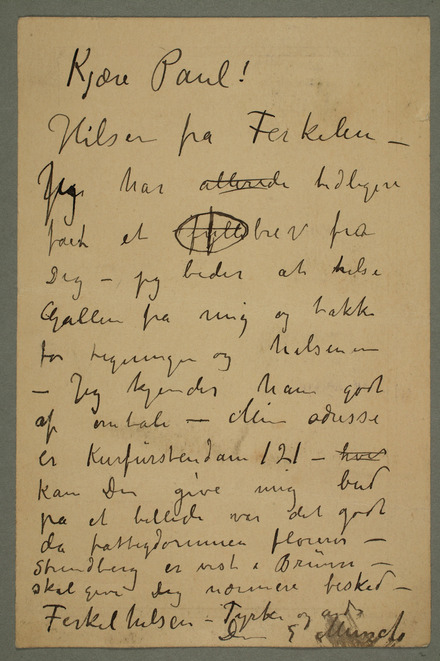 Kjære Paul!
Hilsen fra Ferkelen —
Jeg har allerede tidligere
faaet et fyllebrev fra
Dig — jeg beder at hilse
Gallen fra mig og takke
for tegningen og hilsenen
— Jeg kjender ham godt
af omtale — Min adresse
er Kurfürstendam 121 — hvis
kan Du give mig bud
på et billede var det godt
da fattigdommen florerer —
Strindberg er vist i Brünn —
skal give Dig nærmere besked —
Ferkelhilsen — Tyrke og
Din E Munch